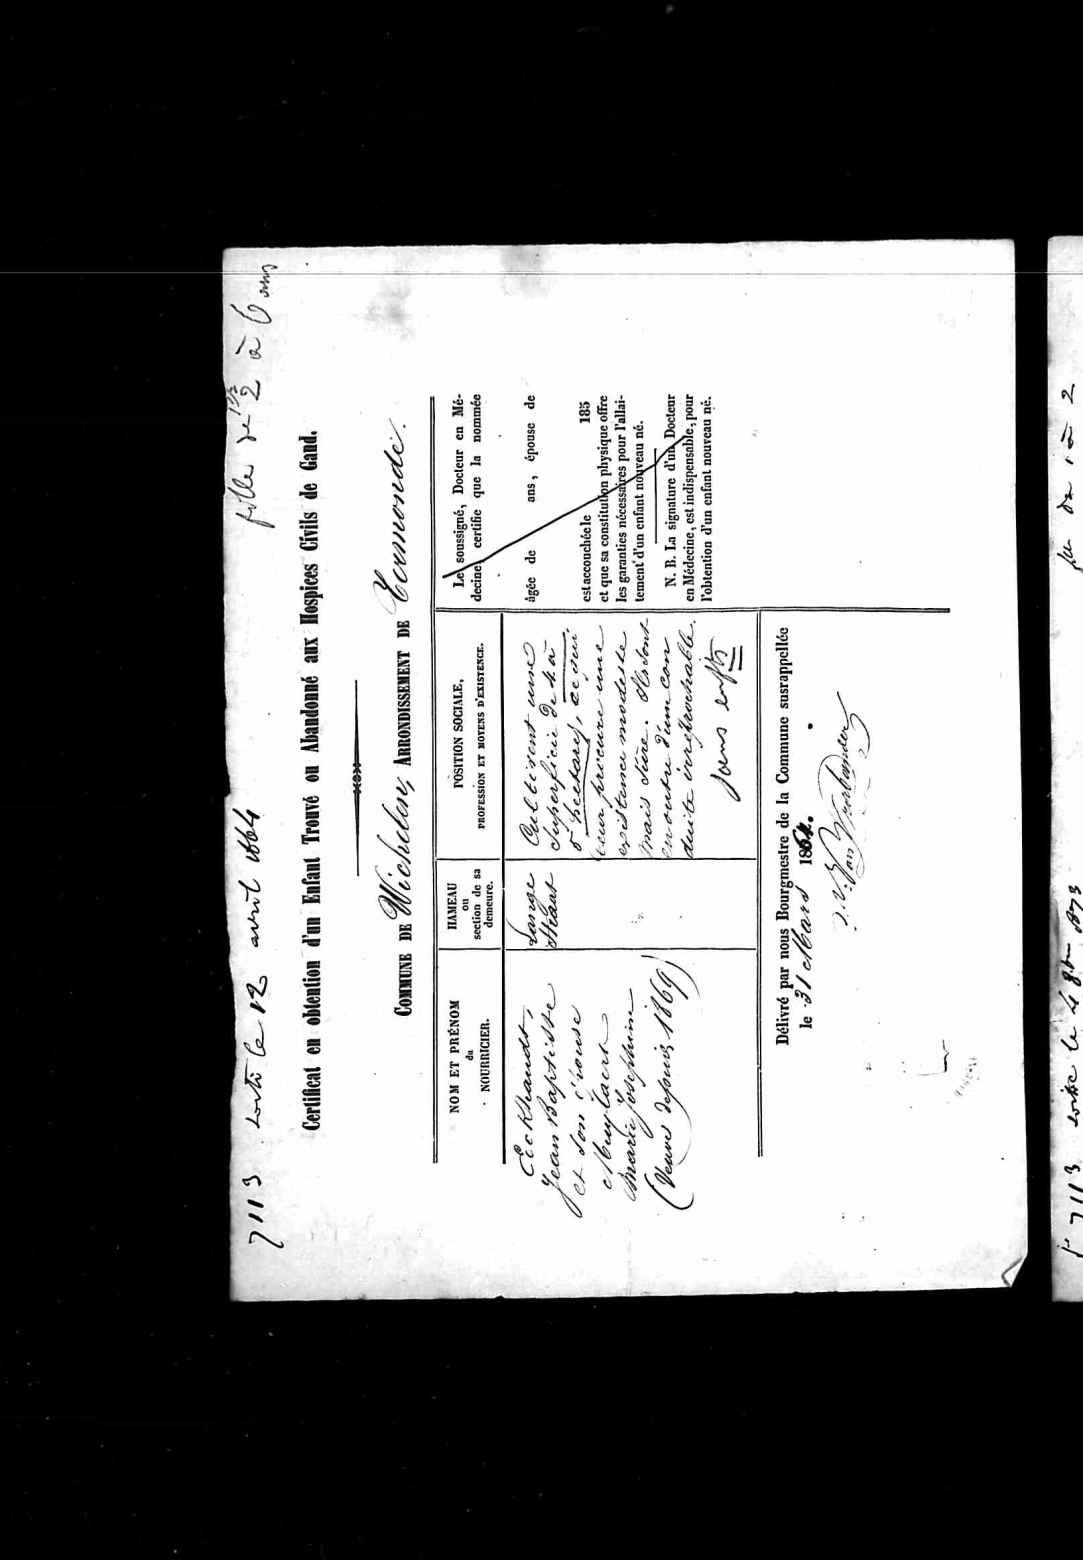 7113 sorti le 12 avril 1864 fille de 1 1/2 2 à 6 ans
Certificat en obtention d'un Enfant Trouvé ou Abandonné aux Hospices Civils de Gand.
COMMUNE DE Wichelen, ARRONDISSEMENT DE Termonde.
NOM ET PRÉNOM
du
NOURRICIER.
Eeckhaudt,
Jean Baptiste
et son épouse
Muylaert
Marie Josephine
(Veuve depuis 1869)
HAMEAU
ou
section de sa
demeure.
Lange
Straat
POSITION SOCIALE,
PROFESSION ET MOYENS D'EXISTENCE.
Cultivent une
superficie de 4 à
5 hectares, ce qui
leur procure une
existence modeste
mais sûre. Ils sont
en outre d'une con
duite irréprochable.
sans enfts
Le soussigné, Docteur en Mé-
decine certifie que la nommée
âgée de ans, épouse de
est accouchée le 185
et que sa constitution physique offre
les garanties nécessaires pour l'allai-
tement d'un enfant nouveau né.
N. B. La signature d'un Docteur
en Médecine, est indispensable, pour
l'obtention d'un enfant nouveau né.
Délivré par nous Bourgmestre de la Commune susrappellée
le 31 Mars 1864.
7113 le 1873
de 1 à 2